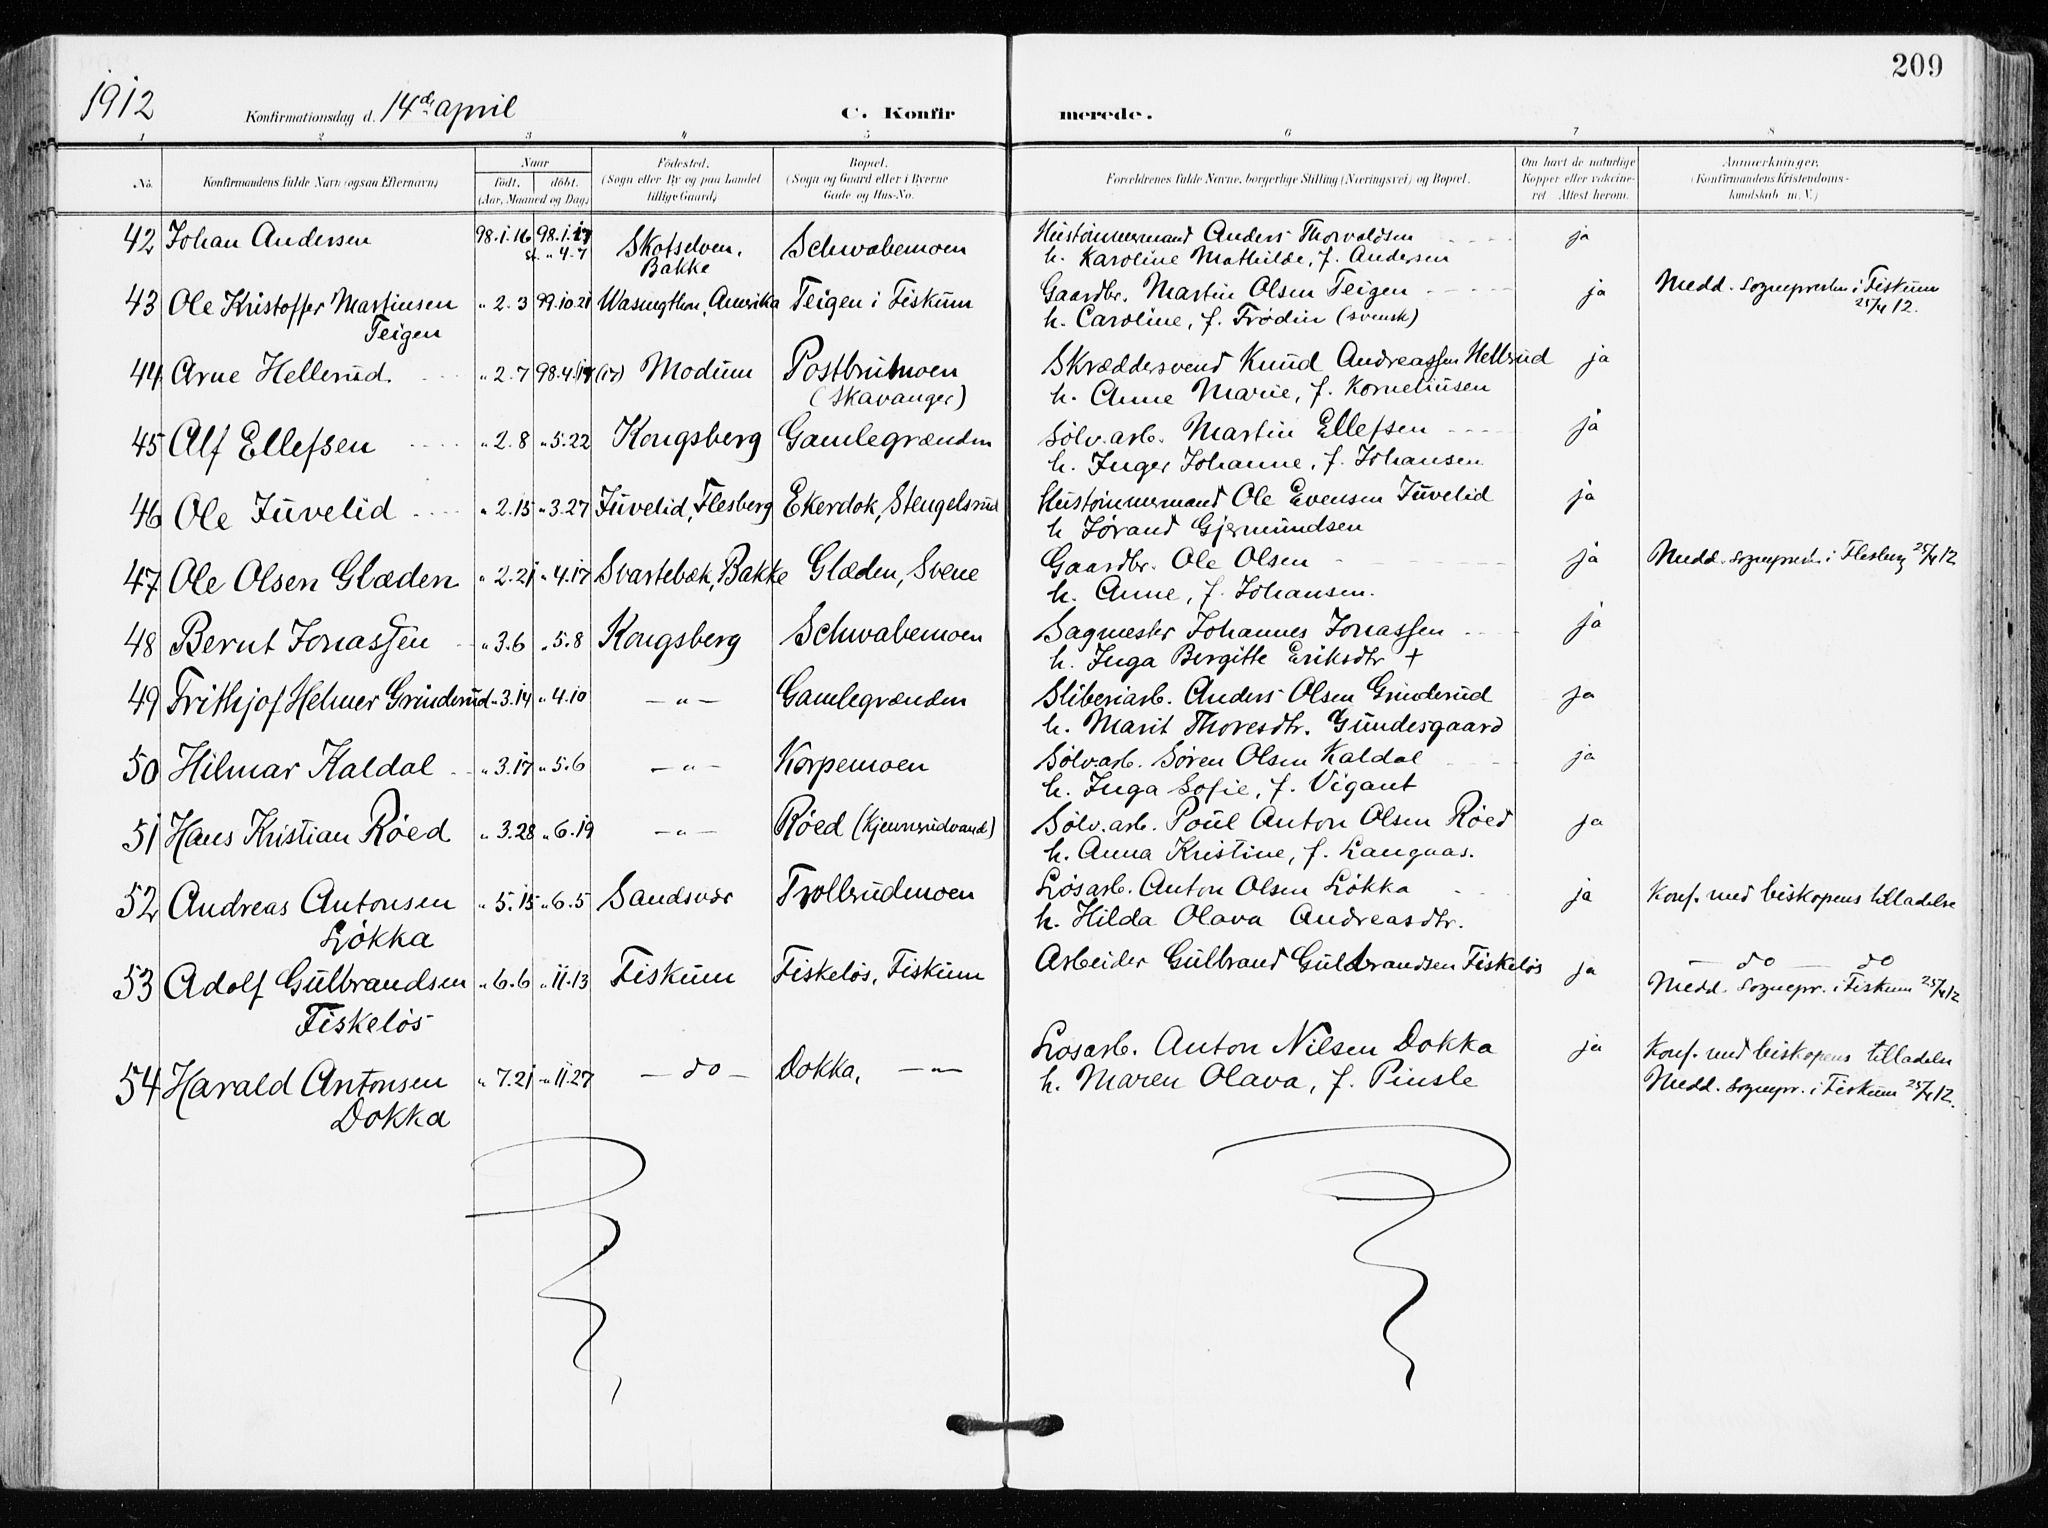 209
1912 Konfirmationsdag d. 14de april C. Konfirmerede.
1 2 3 4 5 6 7 8
No. Konfirmandens fulde Navn (ogsaa Efternavn) Naar født, døbt. (Aar, Maaned og Dag) Fødested. (Sogn eller By og paa Landet tillige Gaard) Bopæl. (Sogn og Gaard eller i Byerne Gade og Hus-No. Forældrenes fulde Navne, borgerlige Stilling (Næringsvei) og Bopæl. Om havt de naturlige Kopper eller vakcineret Attest herom. Anmærkninger. (Konfirmandens Kristendomskundskab m. V.)
42 Johan Andersen 98.1.16 98.1.17 Skotselven, Schwabemoen Hustømmermand Anders Thorvaldsen ja
st. " 4.7 Bakke h. Karoline Mathilde, f. Andersen
43 Ole Kristoffer Martinsen " 2.3 99.10.21 Wasingthon, Amerika Teigen i Fiskum Gaardbr. Martin Olsen Teigen ja Medd. sognepresten i Fiskum
Teigen h. Caroline, f. Frødin (svensk) 25/4 12.
44 Arne Hellerud " 2.7 98.4.17 (17) Modum Postbrumoen Skræddersvend Knud Andreassen Hellerud ja
(Skavanger) h. Anne Marie, f. Korneliusen
45 Alf Ellefsen " 2.8 " 5.22 Kongsberg Gamlegrænden Sølv.arb. Martin Ellefsen ja
h. Inger Johanne, f. Johansen
46 Ole Juvelid " 2.15 " 3.27 Juvelid, Flesberg Ekerdok, Stengelsrud Hustømmermand Ole Evensen Juvelid ja
h. Jørand Gjermundsen
47 Ole Olsen Glæden " 2.21 " 4.17 Svartebæk, Bakke Glæden, Svene Gaardbr. Ole Olsen ja Medd. sogneprest. i Flesberg 25/4 12
h. Anne, f. Johansen.
48 Bernt Jonassen " 3.6 " 5.8 Kongsberg Schwabemoen Sagmester Johannes Jonassen ja
h. Inga Bergitte Eriksdtr +
49 Frithjof Helmer Grinderud " 3.14 " 4.10 — " — Gamlegrænden Sliberiarb. Anders Olsen Grinderud ja
h. Marit Thoresdtr. Gundesgaard
50 Hilmar Kaldal " 3.17 " 5.6 — " — Korpemoen Sølv.arb. Søren Olsen Kaldal ja
h. Inga Sofie, f. Vigant
51 Hans Kristian Røed " 3.28 " 6.19 — " — Røed (Kjennerudvand) Sølv.arb. Poul Anton Olsen Røed ja
h. Anna Kristine, f. Langaas.
52 Andreas Antonsen " 5.15 " 6.5 Sandsvær Trollerudmoen Løsarb. Anton Olsen Løkka ja Konf. med biskopens tilladelse
Løkka h. Hilda Olava Andreasdtr.
53 Adolf Gulbrandsen " 6.6 " 11.13 Fiskum Fiskeløs, Fiskum Arbeider Gulbrand Gulbrandsen Fiskeløs ja — do — do
Fiskeløs Medd. sognepr. i Fiskum 25/4 12
54 Harald Antonsen " 7.21 " 11.27 — do — Dokka, — " — Løsarb. Anton Nilsen Dokka ja Konf. med biskopens tilladelse
Dokka h. Maren Olava, f. Pinsle Medd. sognepr. i Fiskum 25/4 12.